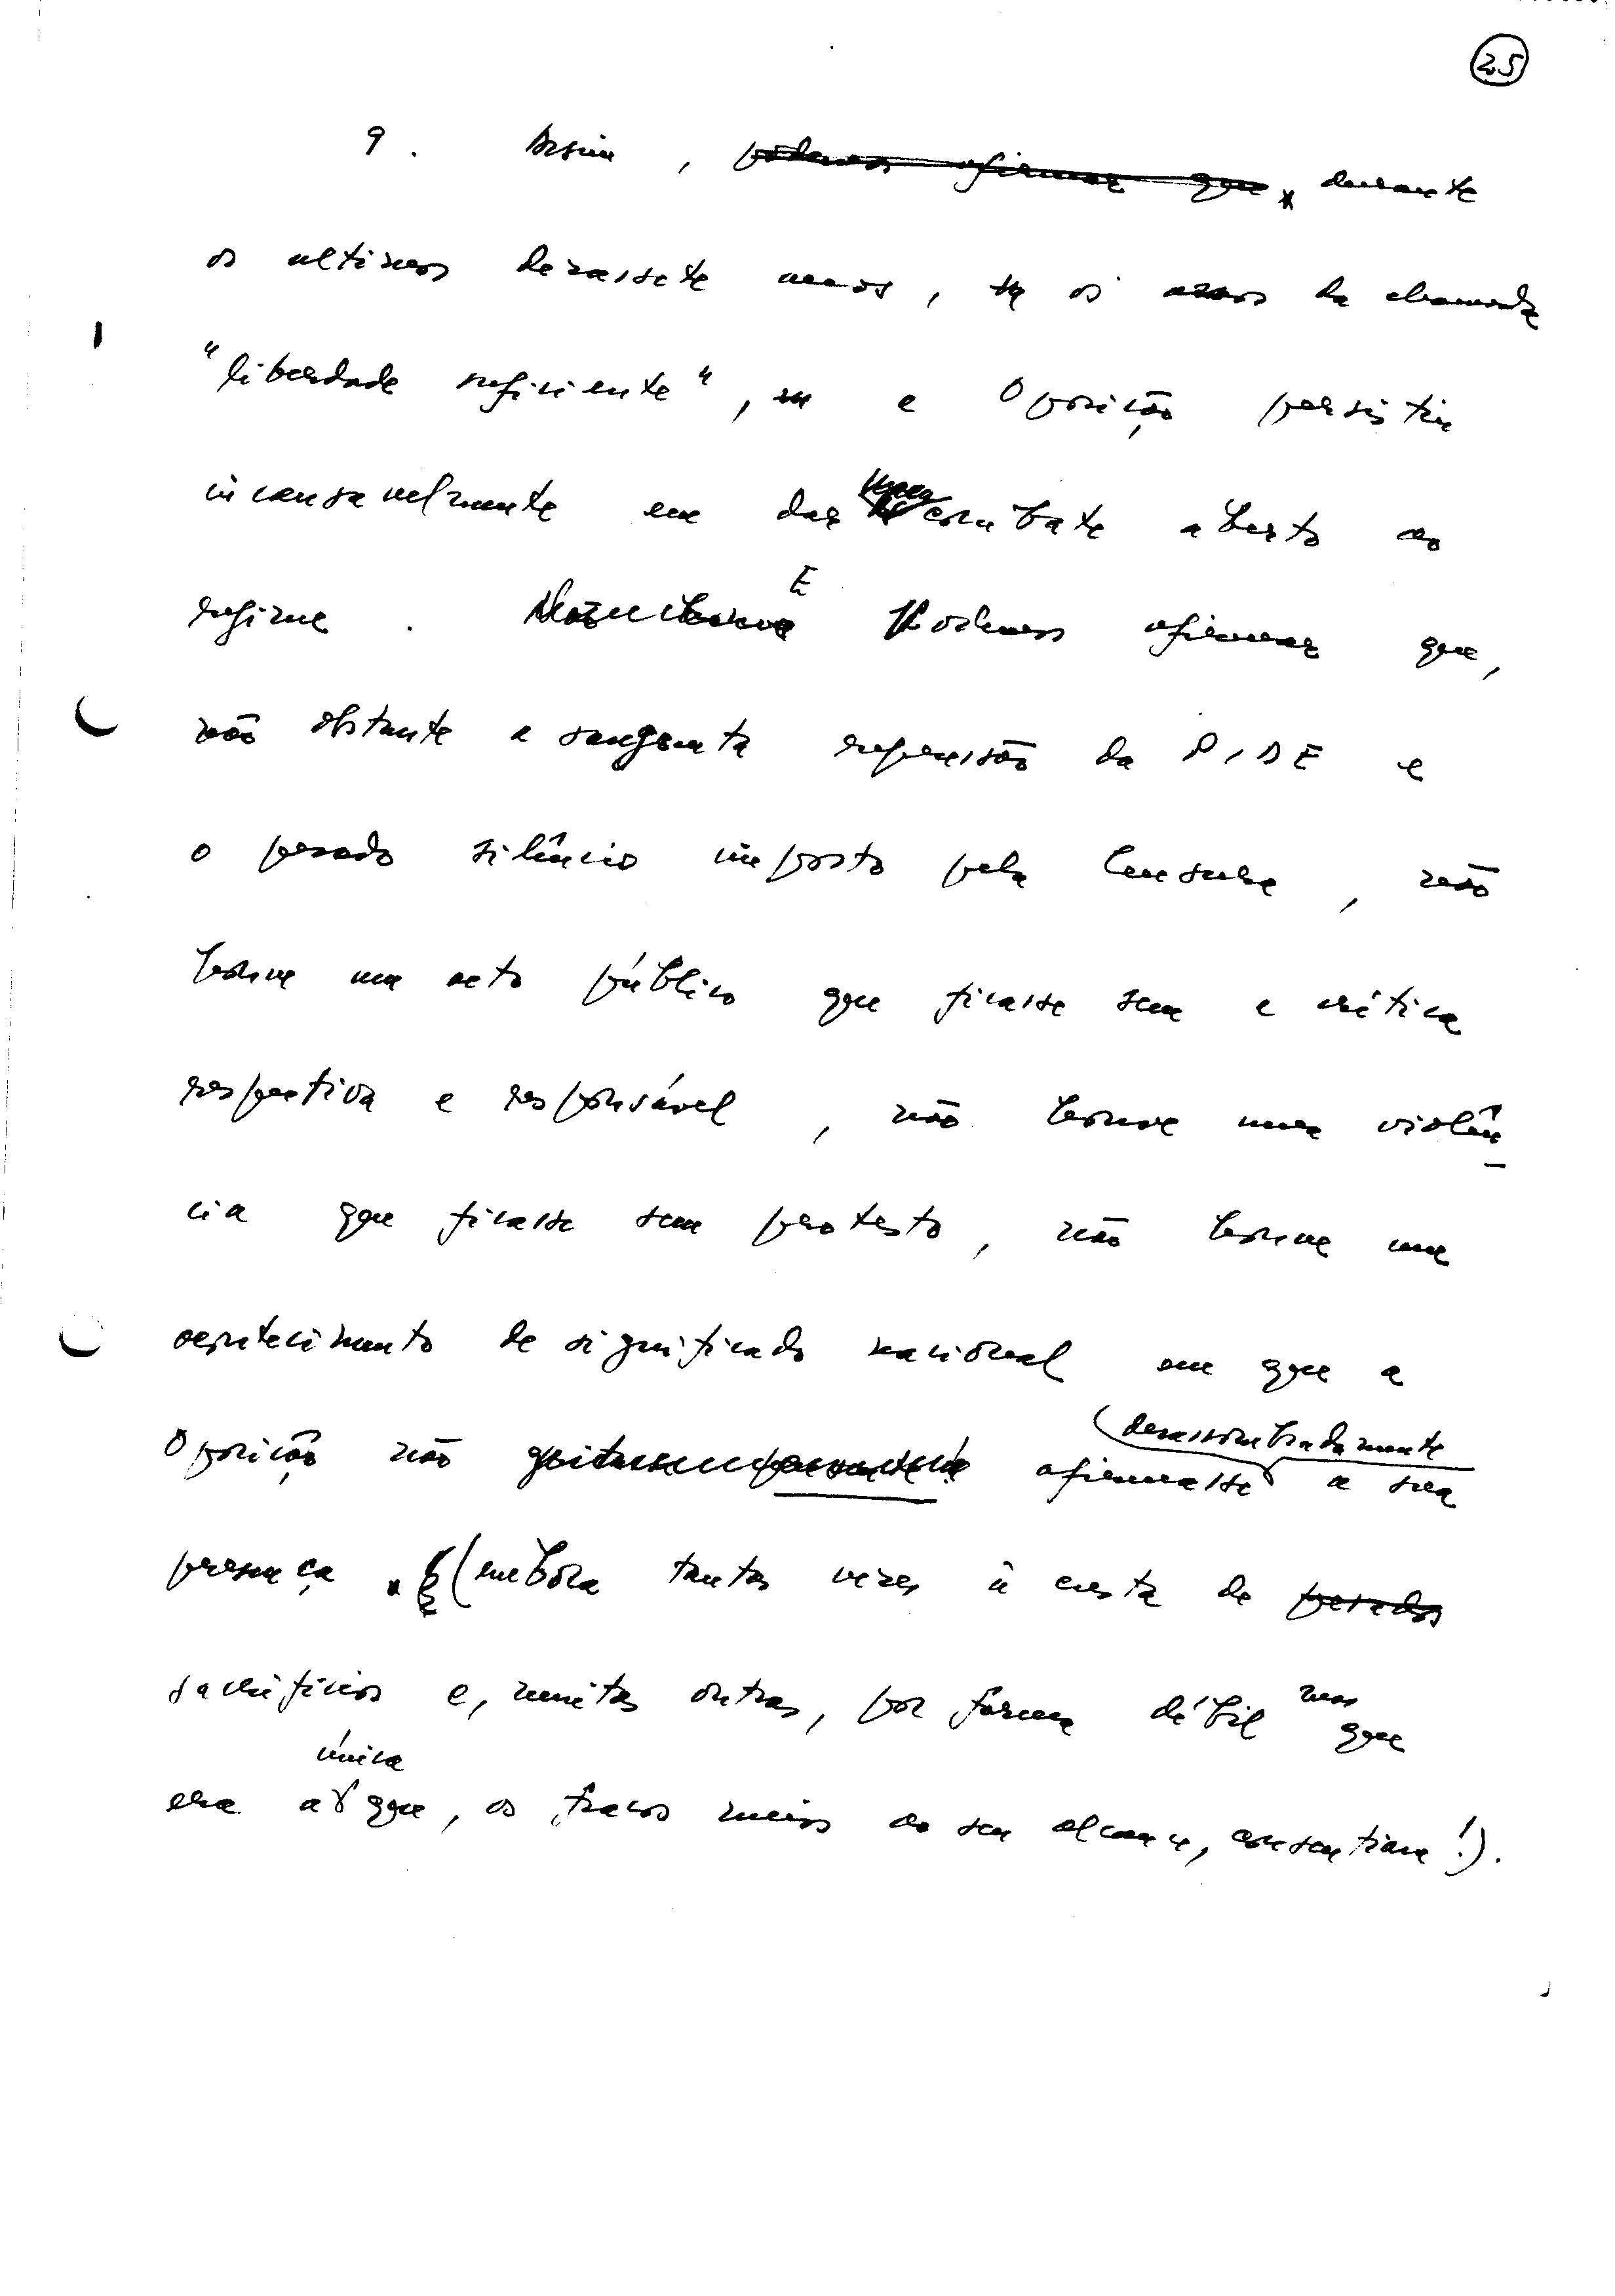 25
9. Assim, podemos afirmar que, durante
os ultimos dezassete anos, os anos da chamada
"liberdade suficiente", a Oposição persistiu
incansavelmente em dar combate aberto ao
regime. E podemos afirmar que,
não obstante a sangrenta repressão da PIDE e
o pesado silêncio imposto pela Censura, não
houve um acto público que ficasse sem a crítica
respectiva e responsável, não houve uma violên
cia que ficasse sem protesto, não houve um
acontecimento de significado nacional em que a
desassombradamente
Oposição não afirmasse a sua
presença (embora tantas vezes à custa de pesados
sacrifícios e, muitas outras, por forma débil mas que
única
era a que, os fracos meios ao seu alcance, consentiam!).